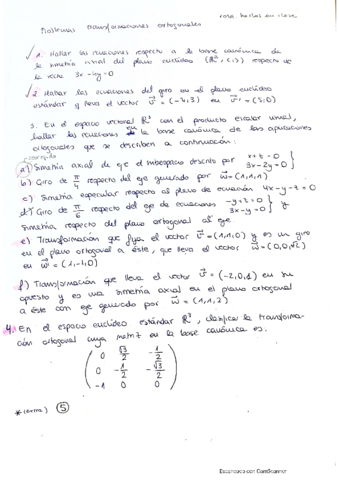 rosa: hechos en clase
Problemas transformaciones ortogonales
1. Hallar las ecuaciones respecto a la base canónica de
la simetría axial del plano euclídeo (ℝ², <,>) respecto de
la recta 3x-4y=0
2. Hallar las ecuaciones del giro en el plano euclídeo
estándar q lleva el vector v⃗ = (-4,3) en v⃗' = (5,0)
3. En el espacio vectorial ℝ³ con el producto escalar usual,
hallar las ecuaciones en la base canónica de las aplicaciones
ortogonales que se describen a continuación:
a) Simetría axial de eje el subespacio descrito por x+z=0 }
3x-2y=0 }
b) Giro de π/4 respecto del eje generado por w⃗=(1,1,1)
c) Simetría especular respecto al plano de ecuación 4x-y-z=0
d) Giro de π/6 respecto del eje de ecuaciones -y+z=0 } y
3x-y=0 }
simetría respecto del plano ortogonal al eje
e) Transformación que fija el vector v⃗=(1,1,0) y es un giro
en el plano ortogonal a éste, que lleva el vector w⃗=(0,0,√2)
en w⃗'=(1,-1,0)
f) Transformación que lleva el vector v⃗=(-2,0,1) en su
opuesto y es una simetría axial en el plano ortogonal
a éste con eje generado por w⃗=(1,1,2)
4. En el espacio euclídeo estándar ℝ³, clasifica la transforma-
ción ortogonal cuya matriz en la base canónica es:
0 √3/2 -1/2
0 -1/2 -√3/2
-1 0 0
5
Escaneado con CamScanner